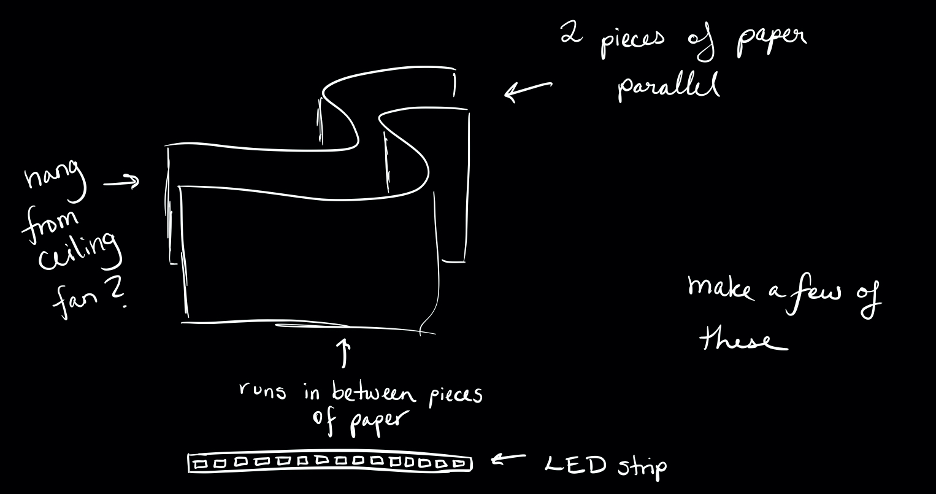 2 pieces of paper
parallel
hang
from
ceiling
fan?
make a few of
these
runs in between pieces
of paper
LED strip